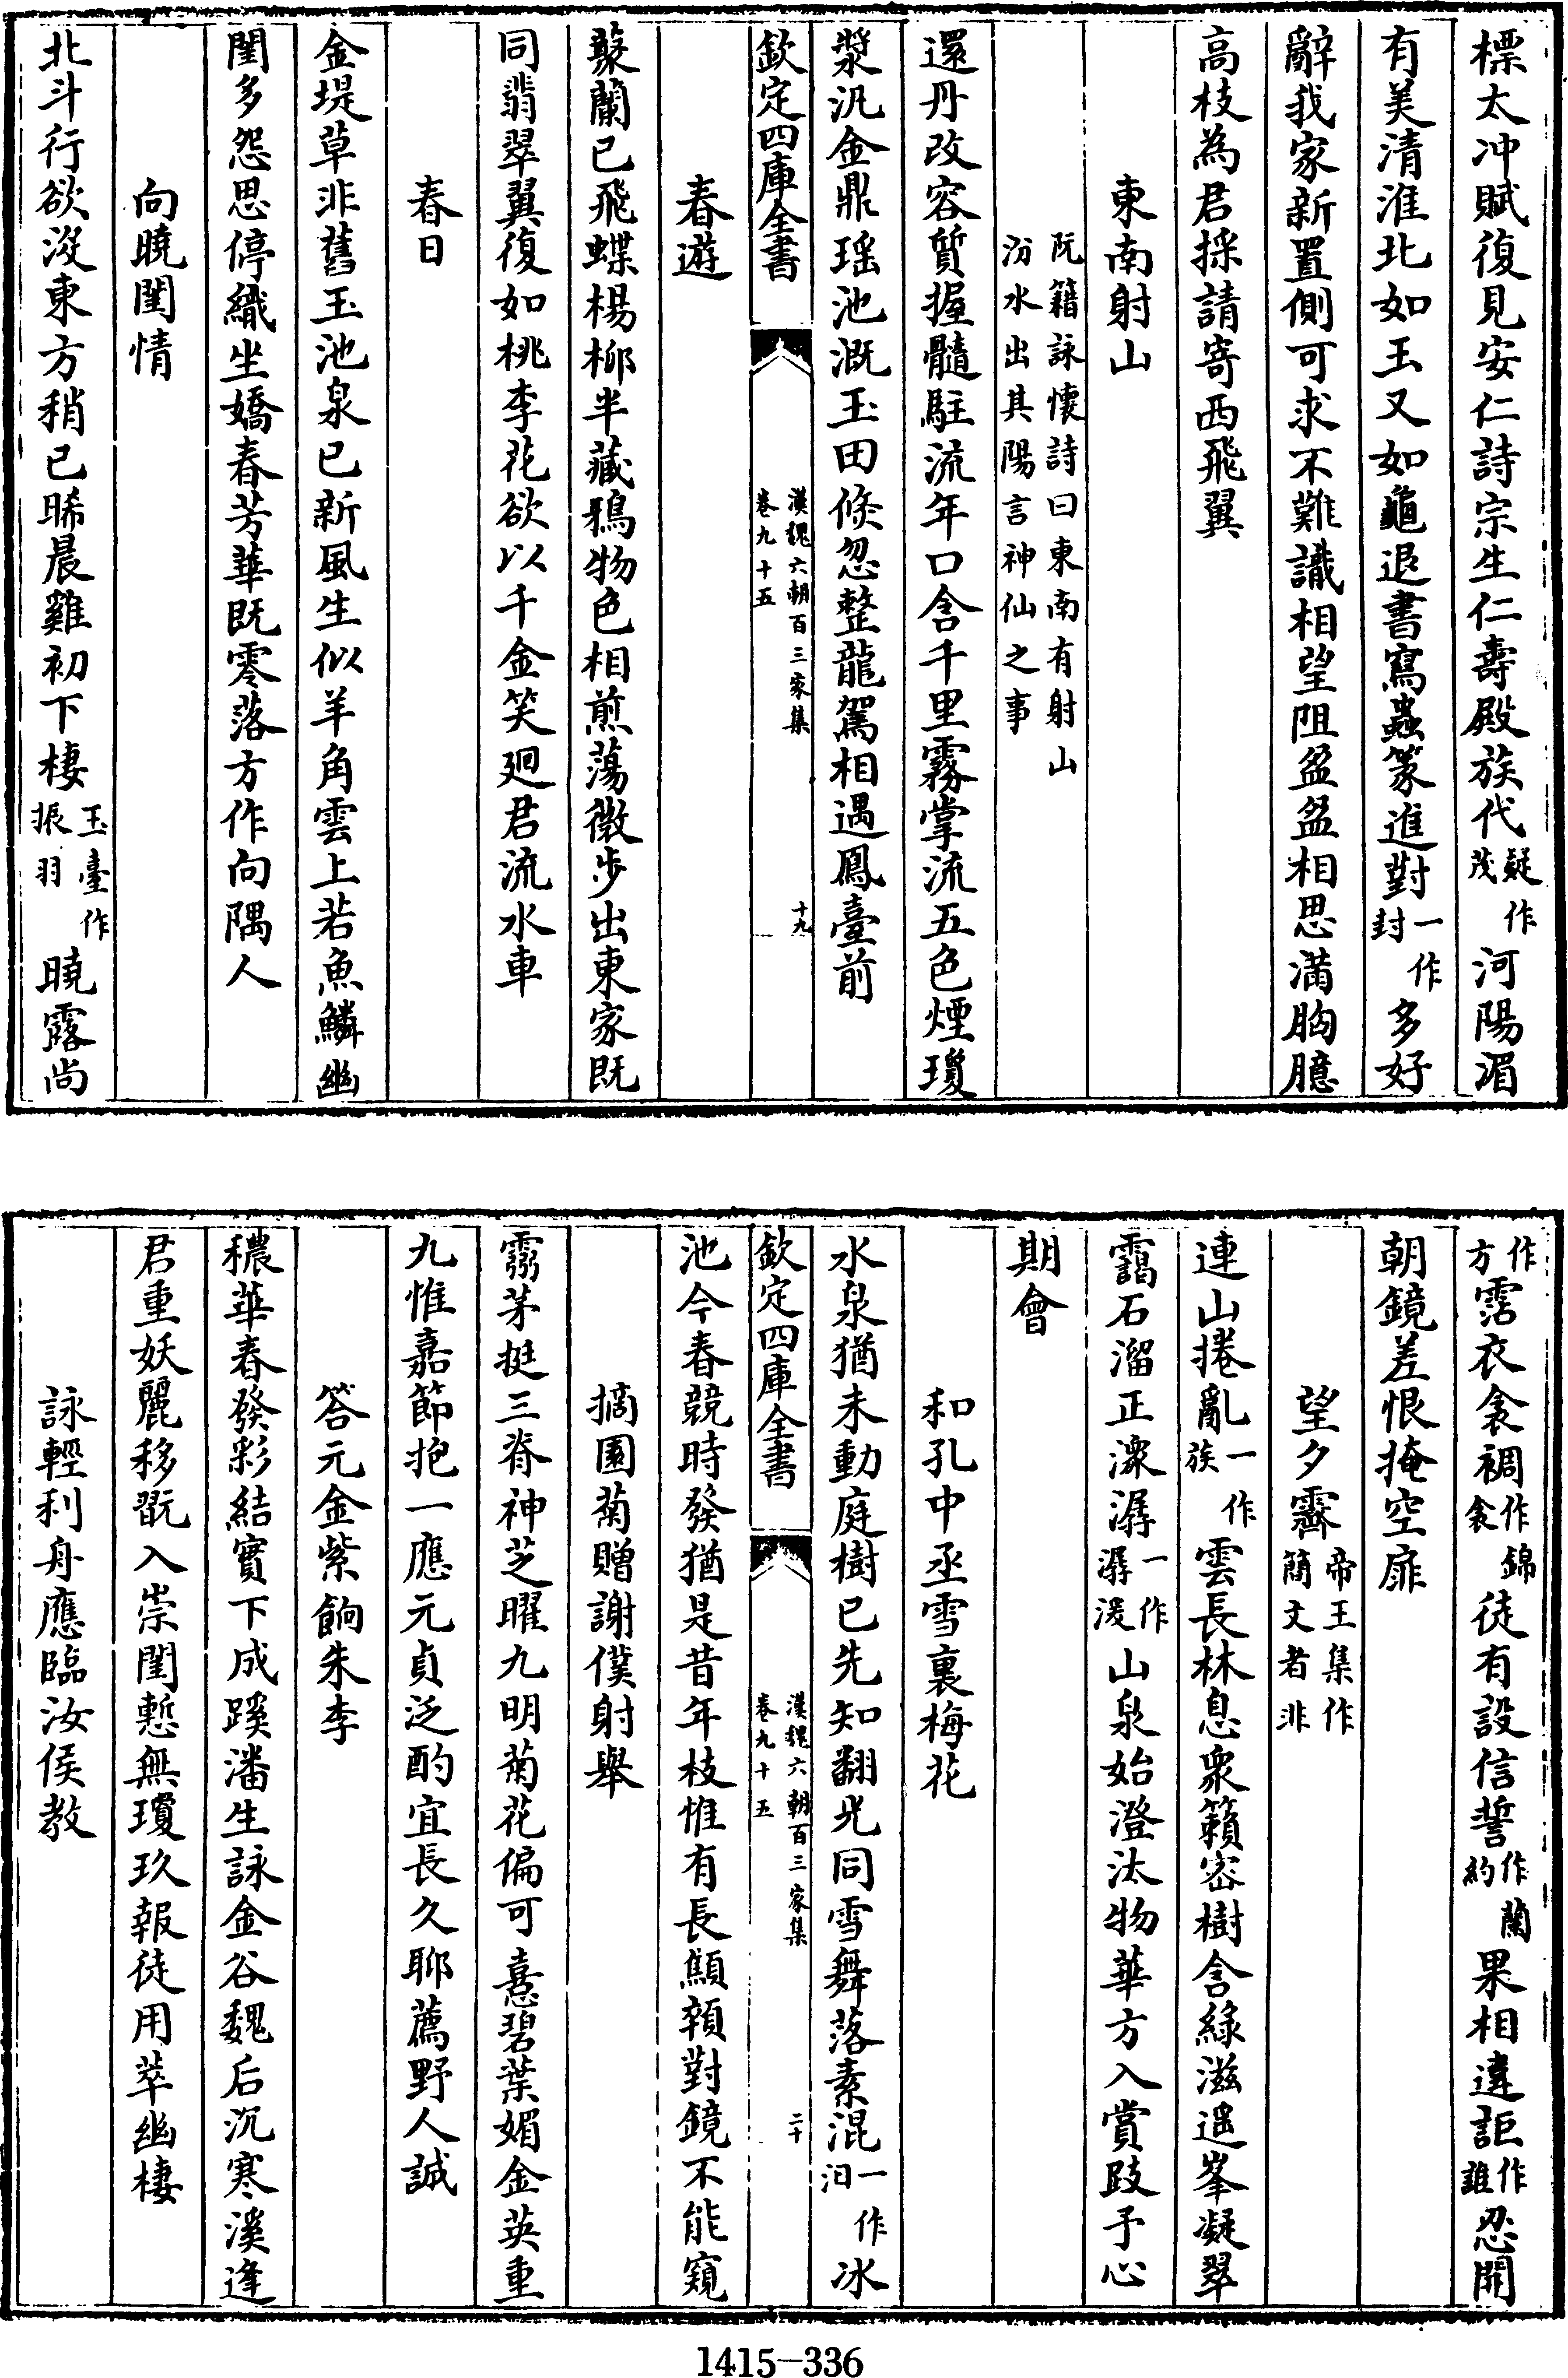 標太冲賦復見安仁詩宗生仁壽殿族代疑作茂河陽湄
有美清淮北如玉又如龜退書寫蟲篆進對一作封多好
辭我家新置側可求不難識相望阻盈盈相思滿胸臆
高枝為君採請寄西飛翼
東南射山
阮籍詠懷詩曰東南有射山
汾水出其陽言神仙之事
還丹改容質握髓駐流年口含千里霧掌流五色煙瓊
漿汎金鼎瑶池溉玉田倐忽整龍駕相遇鳳臺前
欽定四庫全書
漢魏六朝百三家集
卷九十五
十九
春遊
藂蘭已飛蝶楊柳半藏鴉物色相煎蕩微步出東家既
同翡翠翼復如桃李花欲以千金笑廻君流水車
春日
金堤草非舊玉池泉已新風生似羊角雲上若魚鱗幽
閨多怨思停織坐嬌春芳華既零落方作向隅人
向曉閨情
北斗行欲沒東方稍已晞晨雞初下棲玉臺作振羽曉露尚
作方霑衣衾裯作錦衾徒有設信誓作蘭約果相違詎作誰忍開
朝鏡差恨掩空扉
望夕霽帝王集作簡文者非
連山捲亂一作族雲長林息衆籟密樹含綠滋遥峯凝翠
靄石溜正潀潺一作潺湲山泉始澄汰物華方入賞跂予心
期會
和孔中丞雪裏梅花
水泉猶未動庭樹已先知翻光同雪舞落素混一作汩冰
欽定四庫全書
漢魏六朝百三家集
卷九十五
二十
池今春競時發猶是昔年枝惟有長顦顇對鏡不能窺
摘園菊贈謝僕射舉
靈茅挺三脊神芝曜九明菊花偏可憙碧葉媚金英重
九惟嘉節抱一應元貞泛酌宜長久聊薦野人誠
答元金紫餉朱李
穠華春發彩結實下成蹊潘生詠金谷魏后沉寒溪逢
君重妖麗移翫入崇閨慙無瓊玖報徒用萃幽棲
詠輕利舟應臨汝侯教
1415-336